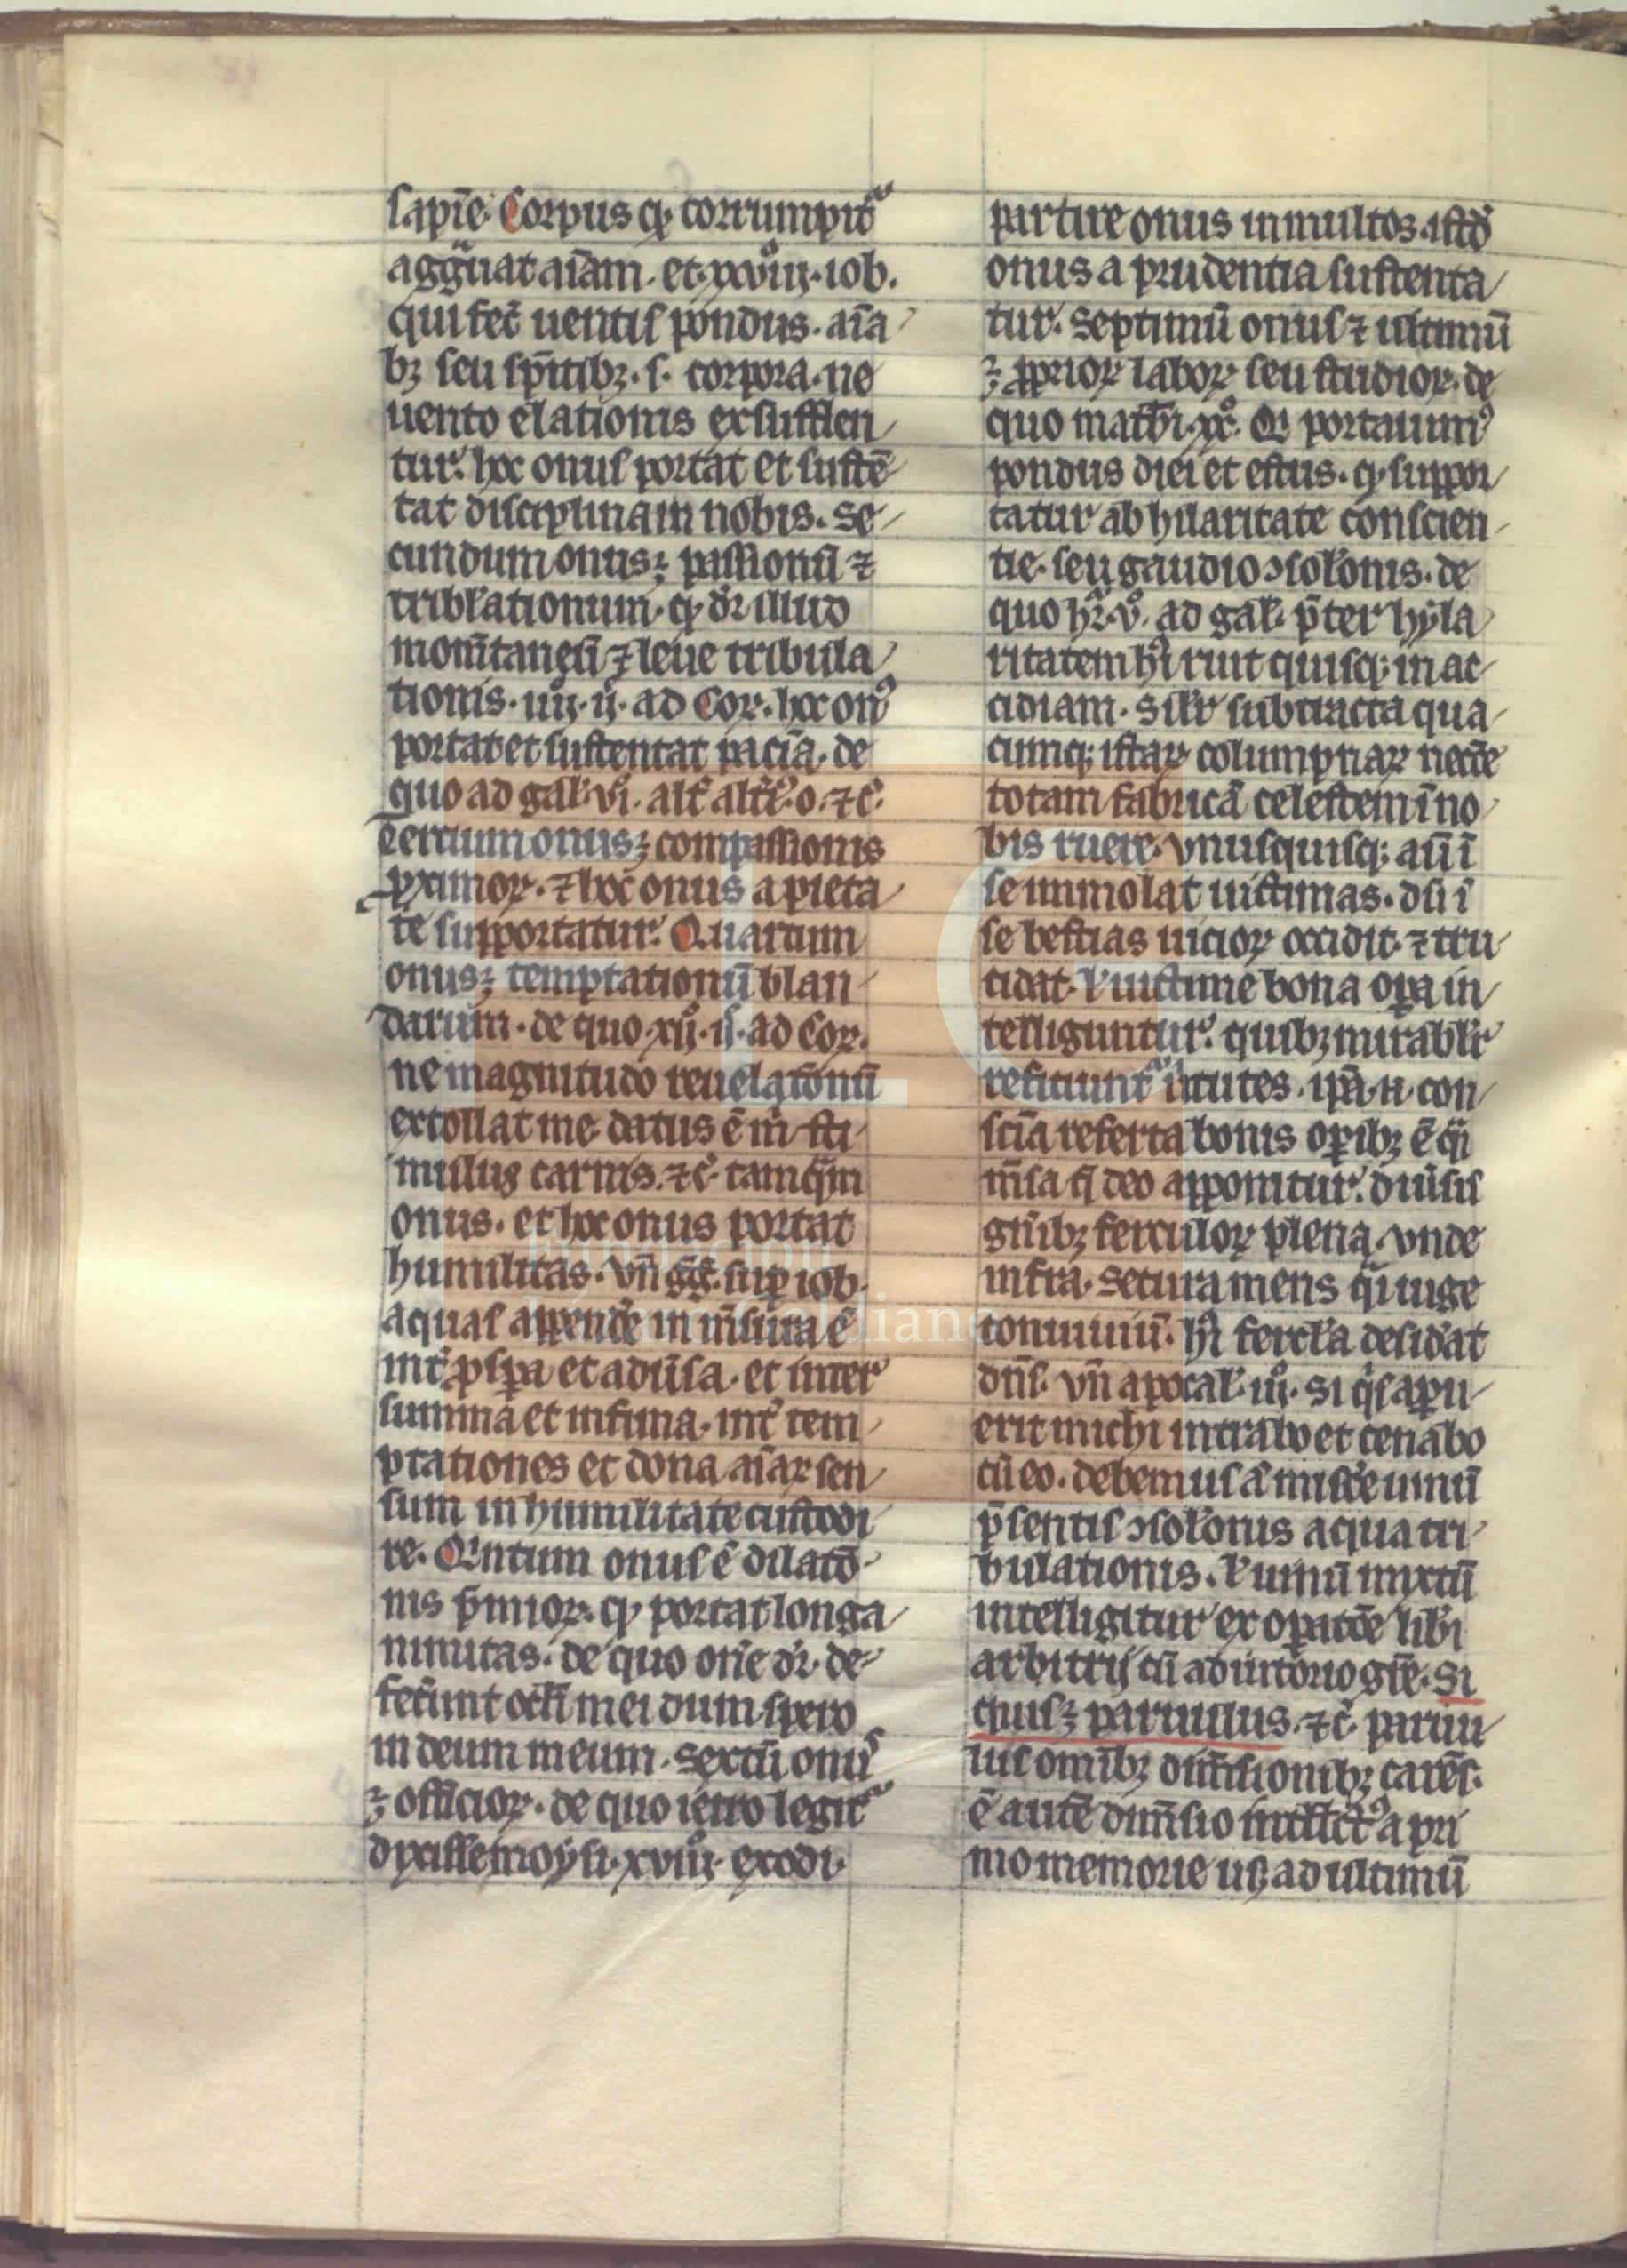 sapīe. Corpus qͥ corrumpit᷑
aggͣuat aīam. et xxviij. iob.
qui fecͭ uentis pondus. aīa
bꝫ seu spiritibꝫ .s. corpora. ne
uento elationis exsufflen
tur. hoc onus portat et sustē
tat disciplina in nobis. Se
cundum onusꝫ passionū ⁊
tribl̓ationum. qͥ dr̄ illud
mom̄taneū ⁊ leue tribula
tionis. iiij. ij. ad Coꝝ. hoc onꝰ
portat et sustentat pacīa. de
quo ad gal̓. vi. alt̓ alt̓iꝰ. o. ⁊c̄.
Tertium onusꝫ compassionis
ꝓximoꝝ. ⁊ hoc onus a pieta
te supportatur. Quartum
onusꝫ temptationū blan
darum. de quo xij. ij. ad Coꝝ.
ne magnitudo reuelat̄onū
extollat me datus ē m̄ sti
mulus carnis. ⁊c̄. tamqͣm
onus. et hoc onus portat
humilitas. vn̄ gg̓. suꝑ iob.
aquas appende̓ in m̄sura ē
int̓ ꝓsꝑa et adūsa. et inter
summa et infima. int̓ tem
ptationes et dona aīaꝝ sen
sum in humilitate custodi
re. Qͥntum onus ē dilatō
nis p̄mioꝝ. qͥ portat longa
nimitas. de quo Orīe dr̄. de
fec̓unt oc̓li mei dum spero
in deum meum. Sextū onꝰ
ꝫ officioꝝ. de quo ietro legit᷑
dixisse moysi. xviij. exodi.
partire onus in multos. istd̓
onus a prudentia sustenta
tur. Septimū onus ⁊ ultimū
ꝫ ꝓprioꝝ laboꝝ seu studioꝝ. de
quo math̓i. xx. Qͥ portauimꝰ
pondus diei et estus. qͥ suppor
tatur ab hilaritate conscien
tie. seu gaudio ↄsol̓onis. de
quo hr̄. v. ad gal̓. p̄ter hyla
ritatem hͥ ruit quisqꝫ in ac
cidiam. Sil̓r subtracta qua
cumqꝫ istaꝝ columpnaꝝ necc̄e
totam fabricā celestem ī no
bis ruere. Vnusquisqꝫ aū ī
se immolat uictimas. dū ī
se bestias uicioꝝ occidit. ⁊ tru
cidat. l̓ uictime bona oꝑa in
telliguntur. quibꝫ mirabl̓r
reficiunt᷑ ūtutes. ip̄a .n. con
scīa referta bonis oꝑibꝫ ē qͣi
m̄sa q̄ deo apponitur. diūsis
gn̄ibꝫ ferculoꝝ plena. Vnde
infra. Secura mens qͣi iuge
conuiuiū. hͥ fercl̓a desid̓at
dn̄s. Vn̄ apocal̓. iij. Si qͥs apu
erit michi intrabo et cenabo
cū eo. debemus ā misce̓ uinū
p̄sentis ↄsol̓onis aqua tri
bulationis. l̓ uinū mixtū
intelligitur ex oꝑatōe lib̓i
arbitrij cū adiutorio gr̄e. Si
quisꝫ paruulus. ⁊c̄. paruu
lus om̄ibꝫ dim̄sionibꝫ carēs.
ē autē dim̄sio intell̓ctꝰ a pri
mo memorie usqꝫ ad ultimū